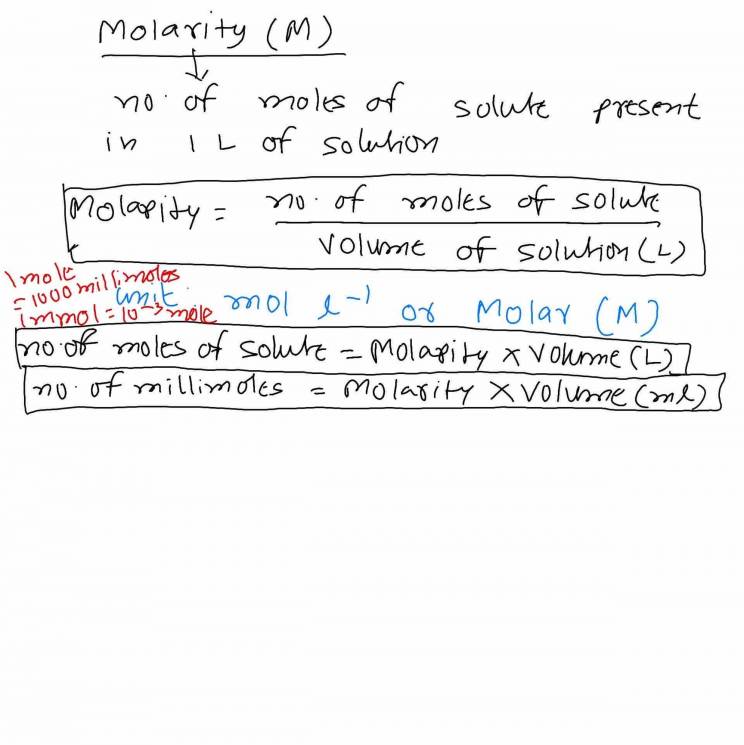 Molarity (M)
no. of moles of solute present
in 1 L of solution
Molarity = no. of moles of solute
volume of solution (L)
1 mole
= 1000 millimoles
1 mmol = 10⁻³ mole
unit mol l⁻¹ or Molar (M)
no. of moles of solute = Molarity × Volume (L)
no. of millimoles = Molarity × Volume (ml)